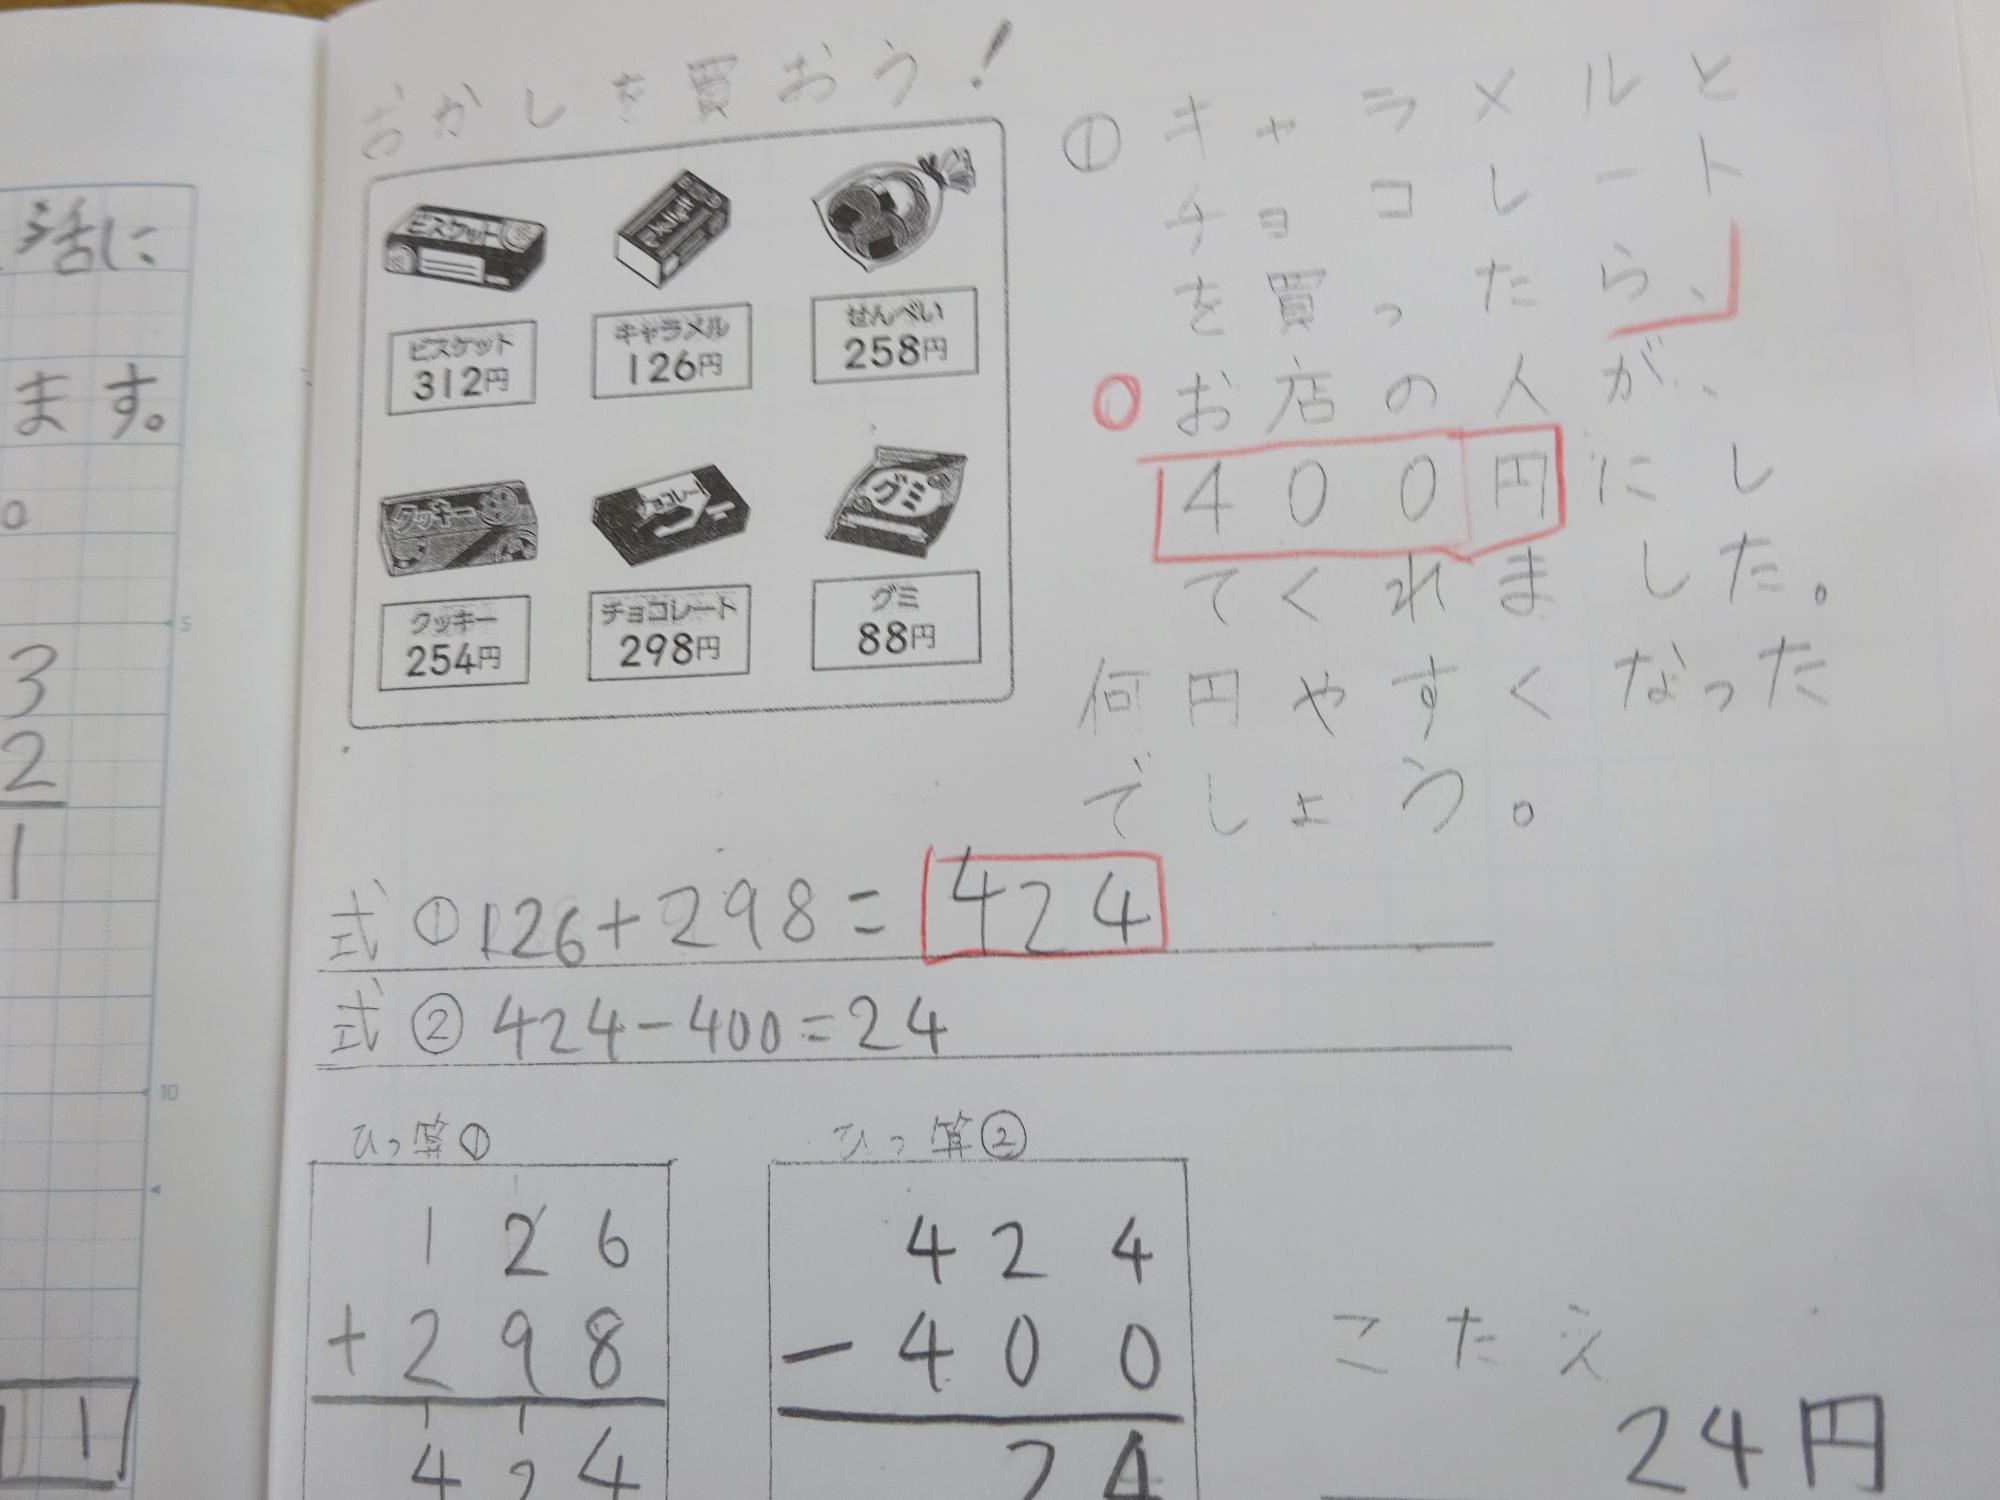 活に
ます。
3
2
1
1
5
10
おかしを買おう!
ビスケット
キャラメル
ビスケット
312円
キャラメル
126円
せんべい
258円
クッキー
チョコレート
グミ
クッキー
254円
チョコレート
298円
グミ
88円
① キャラメルと
チョコレート
を買ったら、
お店の人が、
400円にし
てくれました。
何円やすくなった
でしょう。
式 ① 126+298=424
式 ② 424-400=24
ひっ算①
126
+298
11
424
ひっ算②
424
-400
24
こたえ
24円